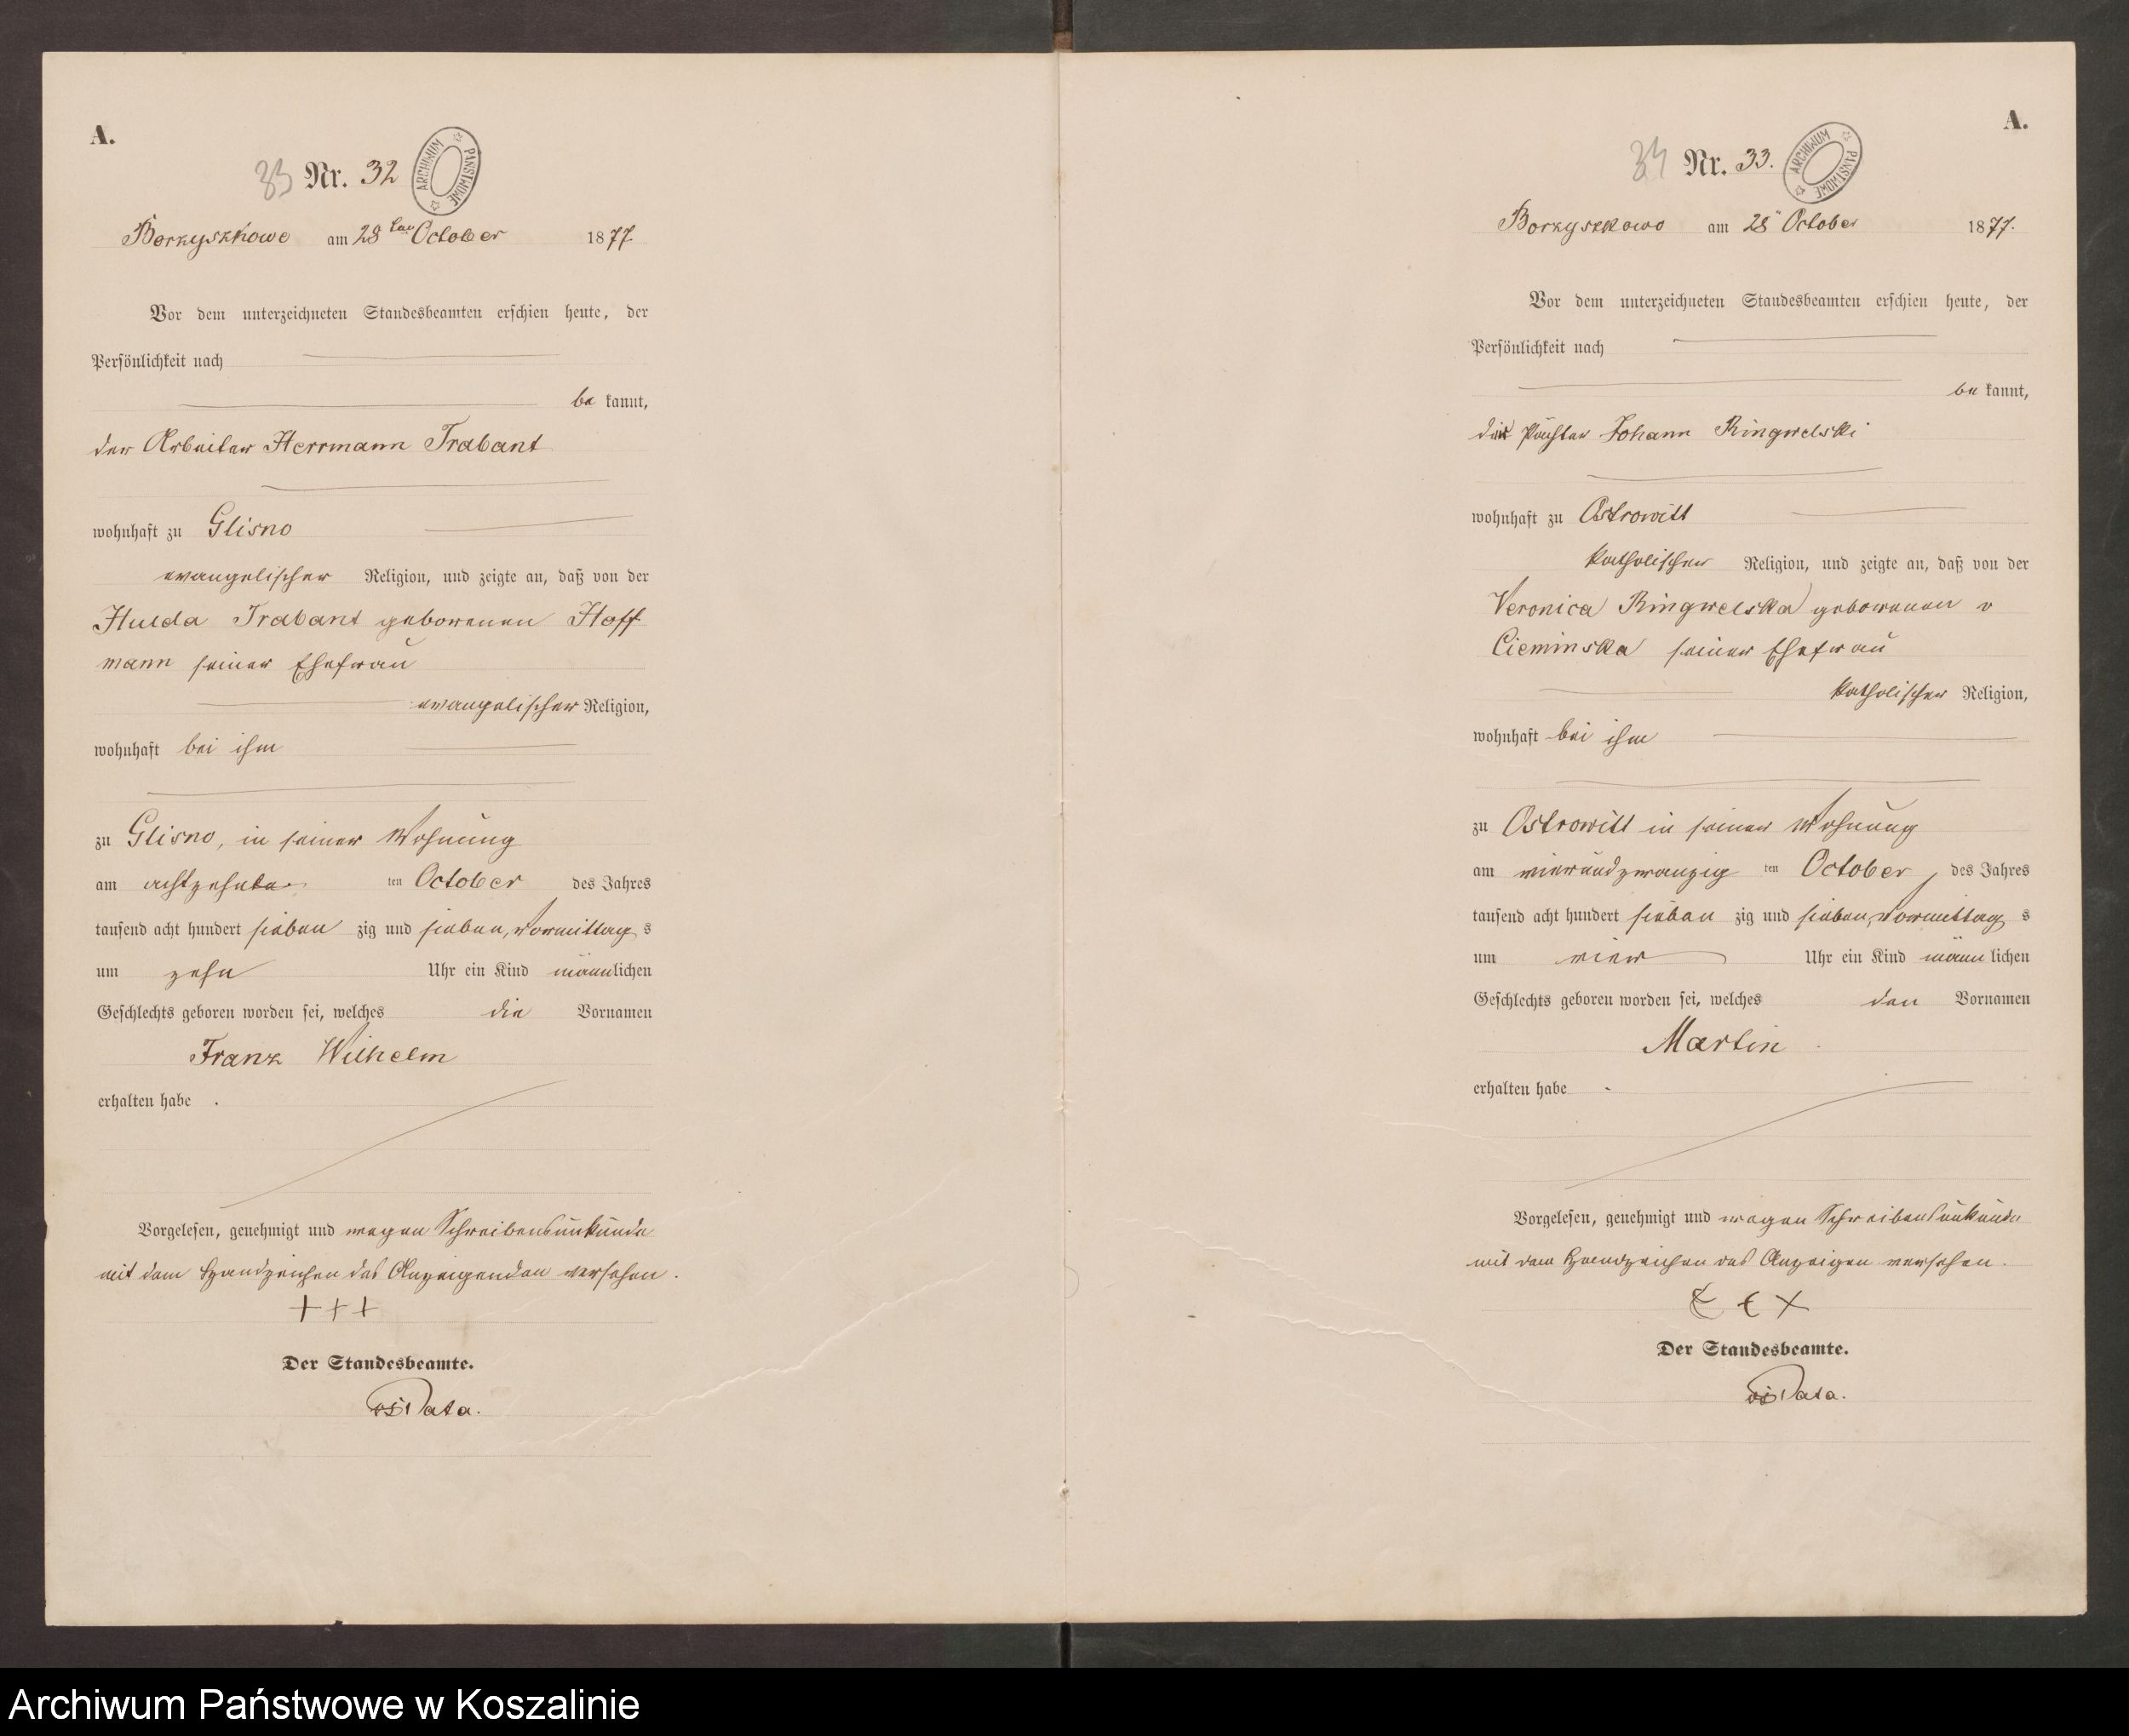 A.
33 Nr. 32
ARCHIWUM PAŃSTWOWE
Borzyszkowo am 28ten October 1877
Vor dem unterzeichneten Standesbeamten erschien heute, der
Persönlichkeit nach
be kannt,
der Arbeiter Herrmann Trabant
wohnhaft zu Glisno
evangelischer Religion, und zeigte an, daß von der
Hulda Trabant geborenen Hoff
mann seiner Ehefrau
evangelischer Religion,
wohnhaft bei ihm
zu Glisno, in seiner Wohnung
am achtzehnten ten October des Jahres
tausend acht hundert sieben zig und sieben, Vormittag s
um zehn Uhr ein Kind männlichen
Geschlechts geboren worden sei, welches die Vornamen
Franz Wilhelm
erhalten habe .
Vorgelesen, genehmigt und wegen Schreibensunkunde
mit dem Handzeichen des Anzeigenden versehen.
+++
Der Standesbeamte.
Data.
A.
34 Nr. 33.
ARCHIWUM PAŃSTWOWE
Borzyszkowo am 28 October 1877.
Vor dem unterzeichneten Standesbeamten erschien heute, der
Persönlichkeit nach
be kannt,
Johann Ringwelski
wohnhaft zu Ostrowitt
katholischer Religion, und zeigte an, daß von der
Veronica Ringwelska geborenen v
Cieminska seiner Ehefrau
katholischer Religion,
wohnhaft bei ihm
zu Ostrowitt in seiner Wohnung
am vierundzwanzig ten October, des Jahres
tausend acht hundert sieben zig und sieben, Vormittag s
um vier Uhr ein Kind männ lichen
Geschlechts geboren worden sei, welches den Vornamen
Martin
erhalten habe .
Vorgelesen, genehmigt und wegen Schreibensunkunde
mit dem Handzeichen des Anzeigen versehen.
Der Standesbeamte.
Data.
Archiwum Państwowe w Koszalinie